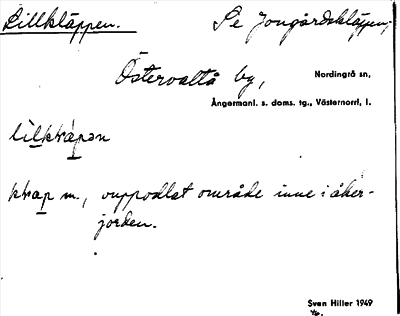 Lillkläppen. Se Jongårdskläppen,
Östervallå by, Nordingrå sn,
Ångermanl. s. doms. tg., Västernorrl. l.
m., ouppodlat område inne i åker-
jorden.
Sven Hiller 1949